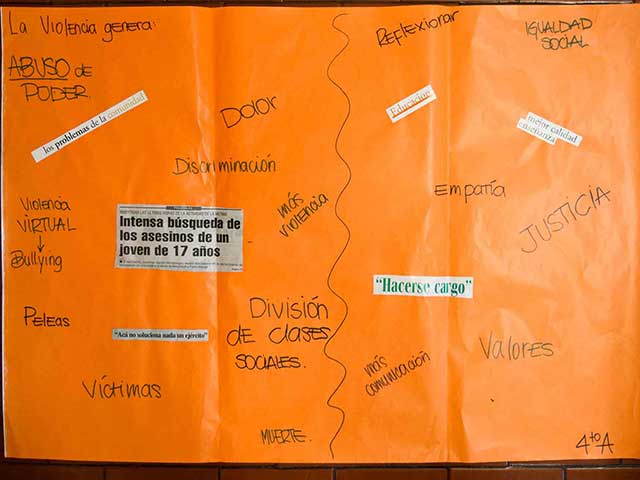 La Violencia genera:
ABUSO de
PODER.
los problemas de la comunidad
Dolor
Discriminación
más
violencia
Violencia
VIRTUAL
Bullying
Intensa búsqueda de
los asesinos de un
joven de 17 años
Peleas
"Acá no soluciona nada un ejército"
División
de clases
sociales.
Víctimas
MUERTE.
Reflexionar
IGUALDAD
SOCIAL
Educación
mejor calidad
enseñanza
Empatía
JUSTICIA
"Hacerse cargo"
más
comunicación
Valores
4to A